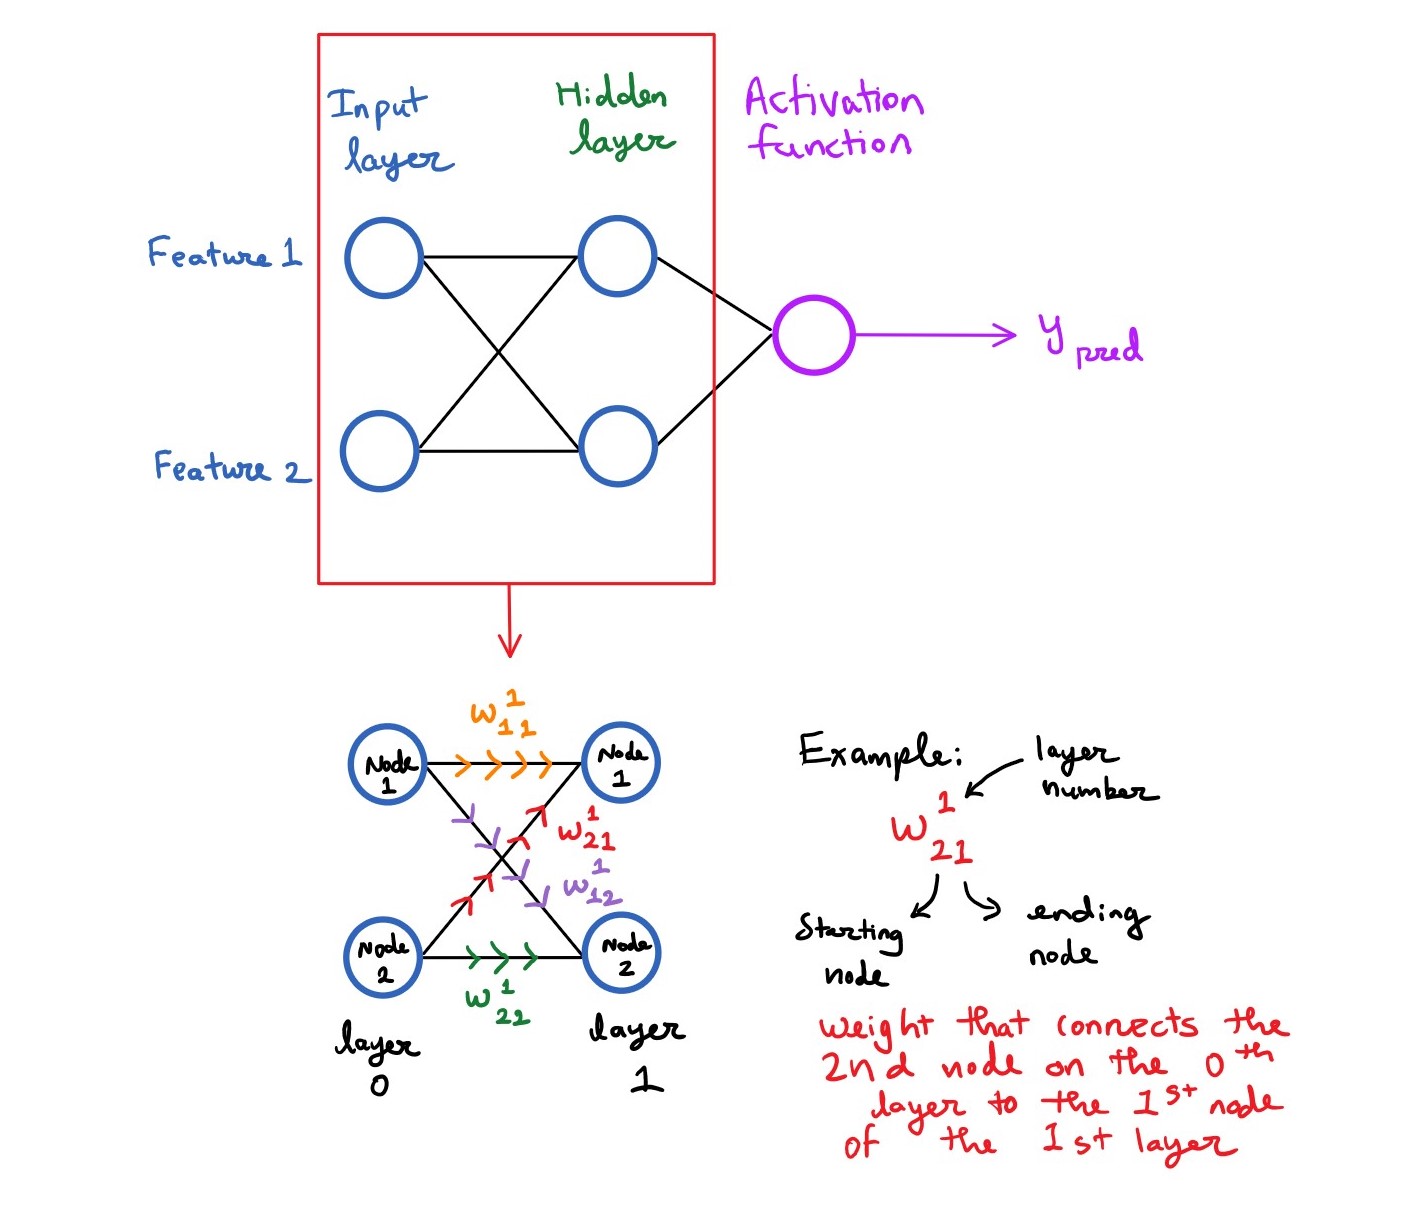 Input
layer
Hidden
layer
Activation
function
Feature 1
Feature 2
y pred
w¹₁₁
Node
1
Node
1
w¹₂₁
w¹₁₂
Node
2
Node
2
w¹₂₂
layer
0
layer
1
Example:
layer
number
w¹₂₁
Starting
node
ending
node
weight that connects the
2nd node on the 0th
layer to the 1st node
of the 1st layer